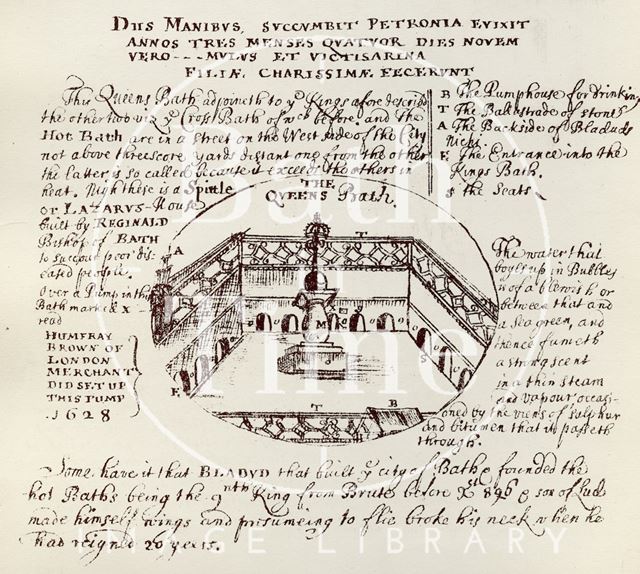 DIIS MANIBVS, SVCCVMBIT PETRONIA EVIXIT
ANNOS TRES MENSES QVATVOR DIES NOVEM
VERO --- MVLVS ET VICTISARINA
FILIÆ CHARISSIMÆ FECERUNT
This Queens Bath adjoineth to yͤ Kings afore describd
the other two viz yͤ Cross Bath of wͨͪ before, and the
HOT BATH are in a street on the West side of the City
not above threescore yards distant one from the other
the latter is so called because it exceeds the others in
heat. Nigh these is a Spittle
or LAZARVS-House
built by REGINALD
Bishop of BATH
to succour poor dis-
eased people.
Over a Pump in this
Bath marckt x
read
HUMFRAY
BROWN OF
LONDON
MERCHANT
DID SET UP
THIS PUMP
.1628
B The Pumphouse for drinking
T The Balustrade of stone
A The Backside of Bladuds
Nich.
E The Entrance into the
Kings Bath.
S the Seats
THE
QUEENS Bath.
T
A
M
S
E
S
T
B
The water that
boyls up in Bubbles
is of a blewish or
between that and
a Sea green, and
thence fumeth
a strong scent
in a thin steam
and vapour occasi-
oned by the viens of sulphur
and bitumen that it passeth
through.
Some have it that BLADVD that built yͤ city of Bath & founded the
hot Baths being the 9nth King from Brute before Xst 896 & son of Lud
made himself wings and presumeing to flie broke his neck when he
had reigned 20 years.
Bath
in
Time
IMAGE LIBRARY